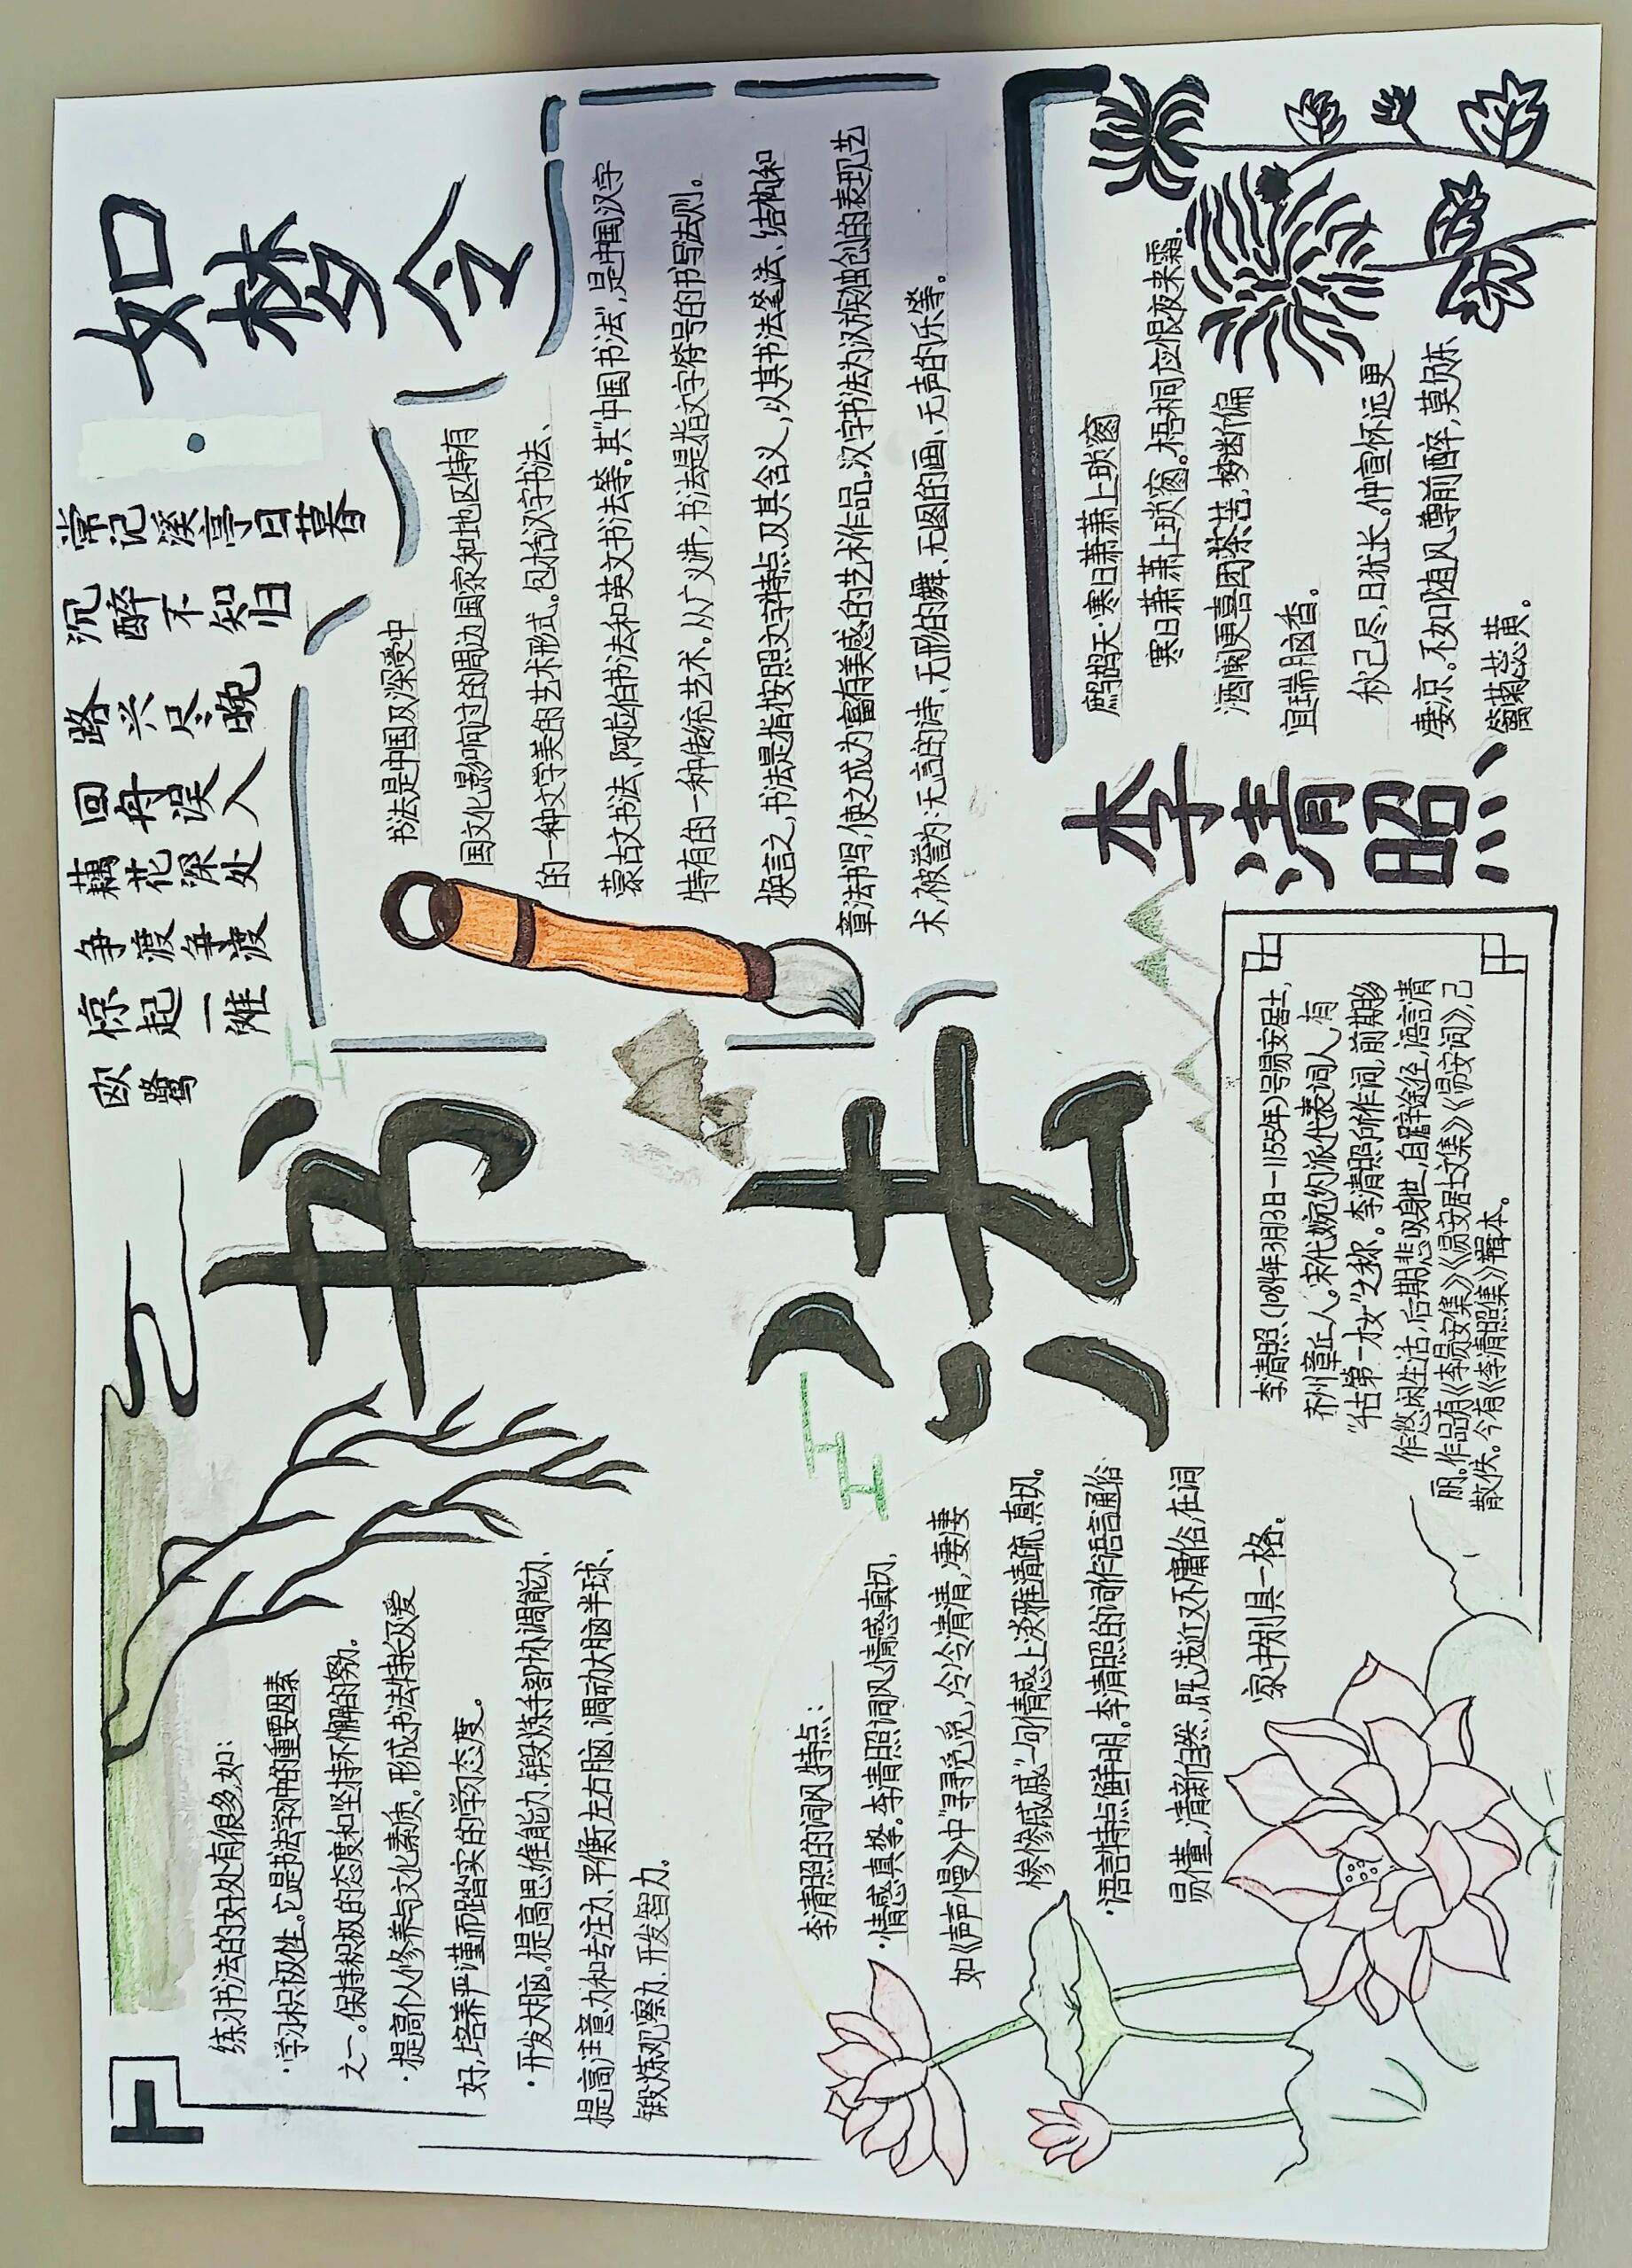 如梦令
·
常记溪亭日暮
沉醉不知归
路兴尽晚
回舟误入
藕花深处
争渡争渡
惊起一滩
欧鹭
书法
练习书法的好处有很多,如:
·学习积极性。它是书法学习中的重要因素
之一。保持积极的态度和坚持不懈的努力。
·提高个人修养与文化素质。形成书法特长及爱
好,培养严谨而踏实的学习态度。
·开发大脑。提高思维能力、锻炼手部协调能力、
提高注意力和专注力、平衡左右脑、调动大脑半球、
锻炼观察力、开发智力。
书法是中国及深受中
国文化影响过的周边国家和地区特有
的一种文字美的艺术形式。包括汉字书法、
蒙古文书法、阿拉伯书法和英文书法等。其“中国书法”,是中国汉字
特有的一种传统艺术。从广义讲,书法是指文字符号的书写法则。
换言之,书法是指按照文字特点及其含义,以其书法笔法、结构和
章法书写,使之成为富有美感的艺术作品。汉字书法为汉族独创的表现艺
术,被誉为:无言的诗、无形的舞、无图的画、无声的乐等。
李清照的词风特点:
·情感真挚。李清照词风情感真切,
如《声声慢》中“寻寻觅觅,冷冷清清,凄凄
惨惨戚戚”一句情感上淡雅清疏、真切。
·语言特点鲜明。李清照的词作语言通俗
易懂,清新自然,既浅近又不庸俗,在词
家中别具一格。
李清照
李清照(1084年3月13日—1155年)号易安居士,
齐州章丘人。宋代婉约派代表词人,有
“千古第一才女”之称。李清照所作词,前期多
作悠闲生活,后期悲叹身世,自辟途径,语言清
丽。作品有《李易安集》《易安居士文集》《易安词》,已
散佚。今有《李清照集》辑本。
鹧鸪天·寒日萧萧上琐窗
寒日萧萧上琐窗。梧桐应恨夜来霜。
酒阑更喜团茶苦,梦断偏
宜瑞脑香。
秋已尽,日犹长。仲宣怀远更
凄凉。不如随风尊前醉,莫负东
篱菊蕊黄。